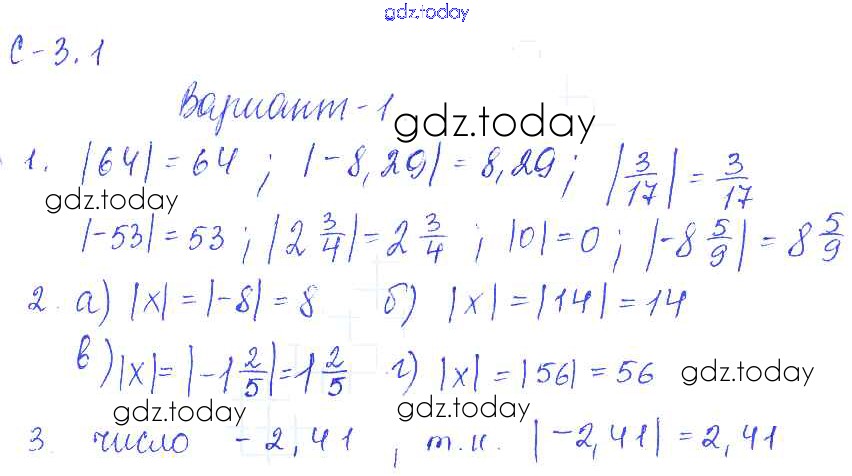 gdz.today
С-3.1
Вариант-1
gdz.today
1. |64| = 64 ; |-8,29| = 8,29 ; |3/17| = 3/17
gdz.today
|-53| = 53 ; |2 3/4| = 2 3/4 ; |0| = 0 ; |-8 5/9| = 8 5/9
2. а) |x| = |-8| = 8 б) |x| = |14| = 14
в) |x| = |-1 2/5| = 1 2/5 г) |x| = |56| = 56 gdz.today
gdz.today gdz.today
3. число -2,41 , т.к. |-2,41| = 2,41